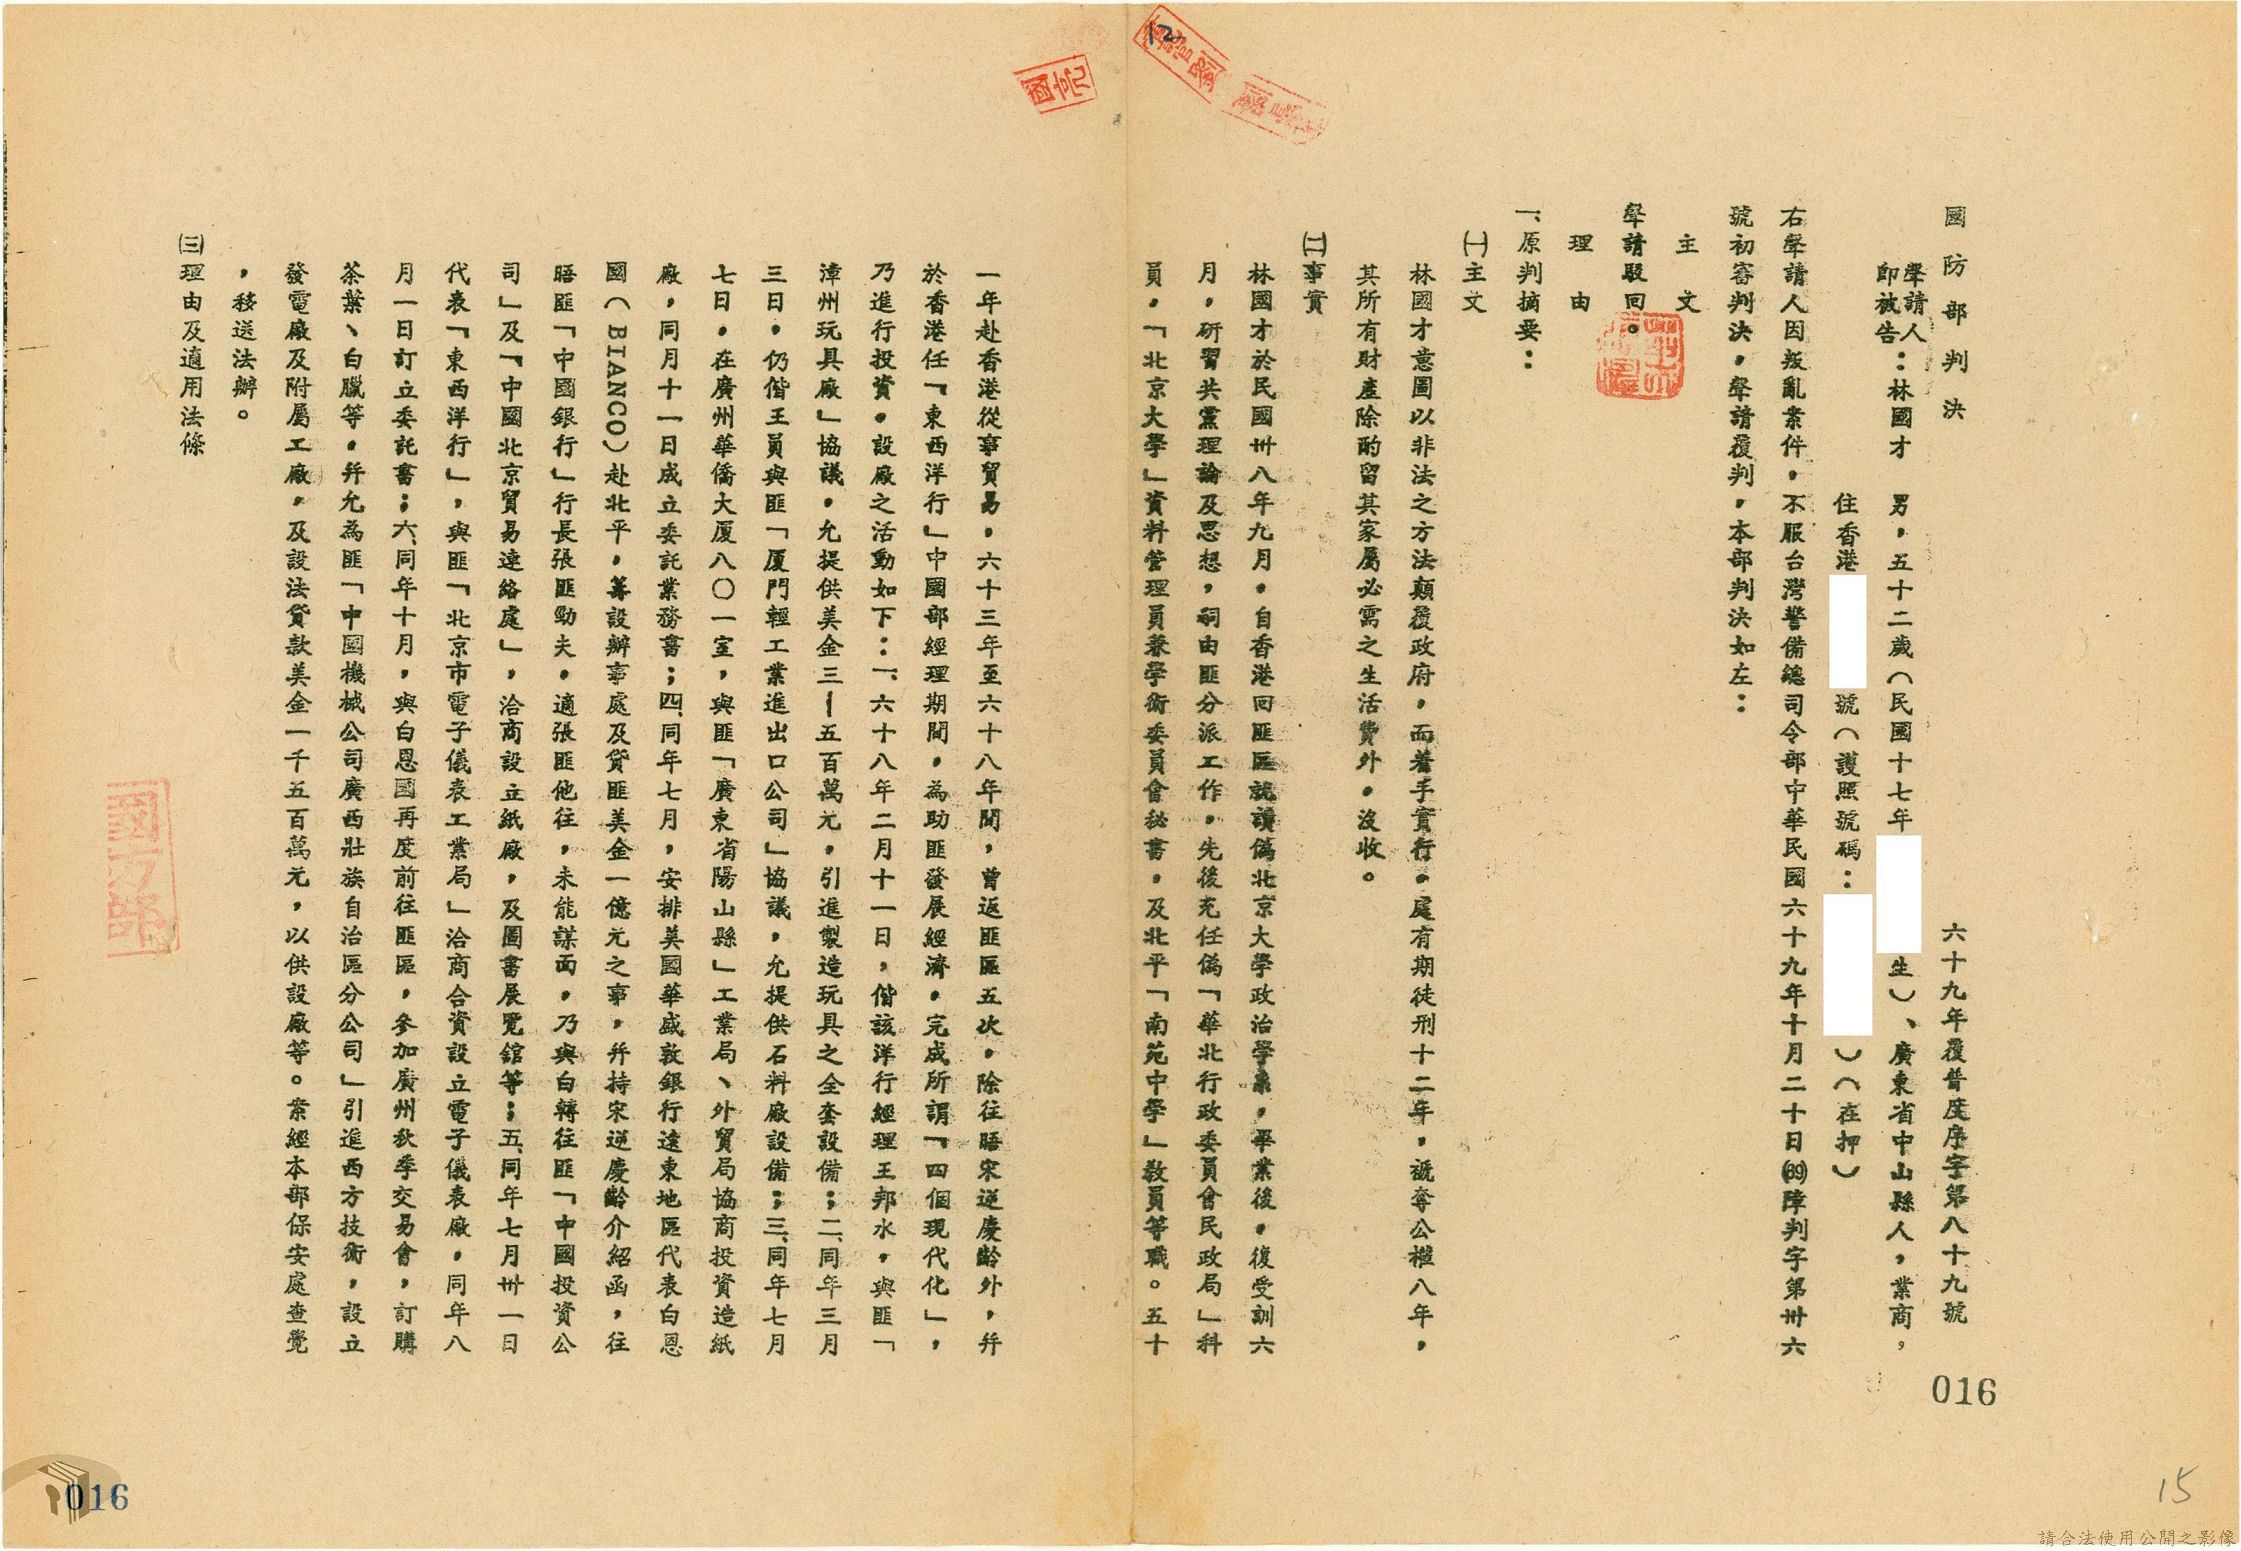 國防部判決
六十九年覆普度序字第八十九號
聲請人
即被告：林國才　男，五十二歲（民國十七年
生）、廣東省中山縣人，業商，
住香港
號（護照號碼：
）（在押）
右聲請人因叛亂案件，不服台灣警備總司令部中華民國六十九年十月二十日(69)障判字第卅六
號初審判決，聲請覆判，本部判決如左：
主文
聲請駁回。
理由
一、原判摘要：
㈠主文
林國才意圖以非法之方法顛覆政府，而着手實行，處有期徒刑十二年，褫奪公權八年，
其所有財產除酌留其家屬必需之生活費外，沒收。
㈡事實
林國才於民國卅八年九月，自香港回匪區就讀偽北京大學政治學系，畢業後，復受訓六
月，研習共黨理論及思想，嗣由匪分派工作，先後充任偽「華北行政委員會民政局」科
員，「北京大學」資料管理員兼學術委員會秘書，及北平「南苑中學」教員等職。五十
一年赴香港從事貿易，六十三年至六十八年間，曾返匪區五次，除往晤宋逆慶齡外，幷
於香港任「東西洋行」中國部經理期間，為助匪發展經濟，完成所謂「四個現代化」，
乃進行投資，設廠之活動如下：一、六十八年二月十一日，偕該洋行經理王邦水，與匪「
漳州玩具廠」協議，允提供美金三－五百萬元，引進製造玩具之全套設備；二、同年三月
三日，仍偕王員與匪「厦門輕工業進出口公司」協議，允提供石料廠設備；三、同年七月
七日，在廣州華僑大厦八〇一室，與匪「廣東省陽山縣」工業局、外貿局協商投資造紙
廠，同月十一日成立委託業務書；四、同年七月，安排美國華盛敦銀行遠東地區代表白恩
國（BIANCO）赴北平，籌設辦事處及貸匪美金一億元之事，幷持宋逆慶齡介紹函，往
晤匪「中國銀行」行長張匪勁夫，適張匪他往，未能謀面，乃與白轉往匪「中國投資公
司」及「中國北京貿易連絡處」，洽商設立紙廠，及圖書展覽館等；五、同年七月卅一日
代表「東西洋行」，與匪「北京市電子儀表工業局」洽商合資設立電子儀表廠，同年八
月一日訂立委託書；六、同年十月，與白恩國再度前往匪區，參加廣州秋季交易會，訂購
茶葉、白臘等，幷允為匪「中國機械公司廣西壯族自治區分公司」引進西方技術，設立
發電廠及附屬工廠，及設法貸款美金一千五百萬元，以供設廠等。案經本部保安處查覺
，移送法辦。
㈢理由及適用法條
國防部
12
016
016
15
請合法使用公開之影像